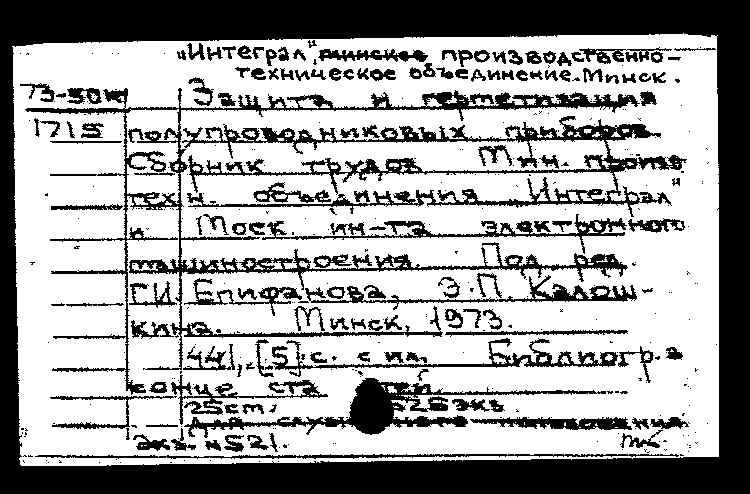 „Интеграл", минское производственно-
техническое объединение. Минск.
73-50к Защита и герметизация
1715 полупроводниковых приборов.
Сборник трудов Мин. произв.
техн. объединения „Интеграл"
и Моск. ин-та электронного
машиностроения. Под ред.
Г.И. Епифанова, Э.П. Калош-
кина. Минск, 1973.
441, [5] с. с ил. Библиогр. в
конце статей.
25см. 525экз.
Для служебного пользования.
Экз. №521.